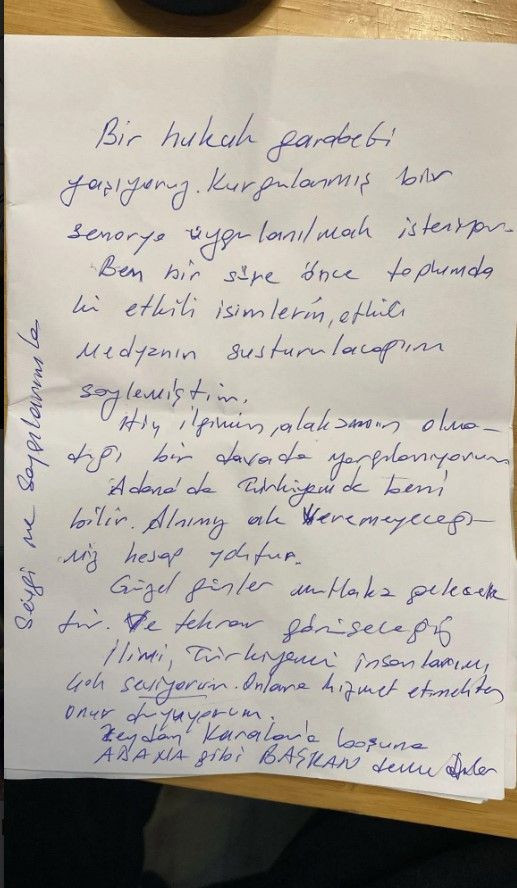 Bir hukuk garabeti
yaşıyoruz. Kurgulanmış bir
senaryo uygulanılmak isteniyor.
Ben bir süre önce toplumda
ki etkili isimlerin, etkili
medyanın susturulacağını
söylemiştim.
Hiç ilgimin, alakamın olma-
dığı bir davada yargılanıyorum
Adana'da Türkiyemde beni
bilir. Alnımız ak veremeyeceği-
miz hesap yoktur.
Güzel günler mutlaka gelecek
tir. Ve tekrar görüşeceğiz
İlimi, Türkiyemi insanlarımı,
çok seviyorum. Onlara hizmet etmekten
onur duyuyorum.
Zeydan Karalar'a boşuna
ADANA gibi BAŞKAN demediler
Sevgi ve Saygılarımla